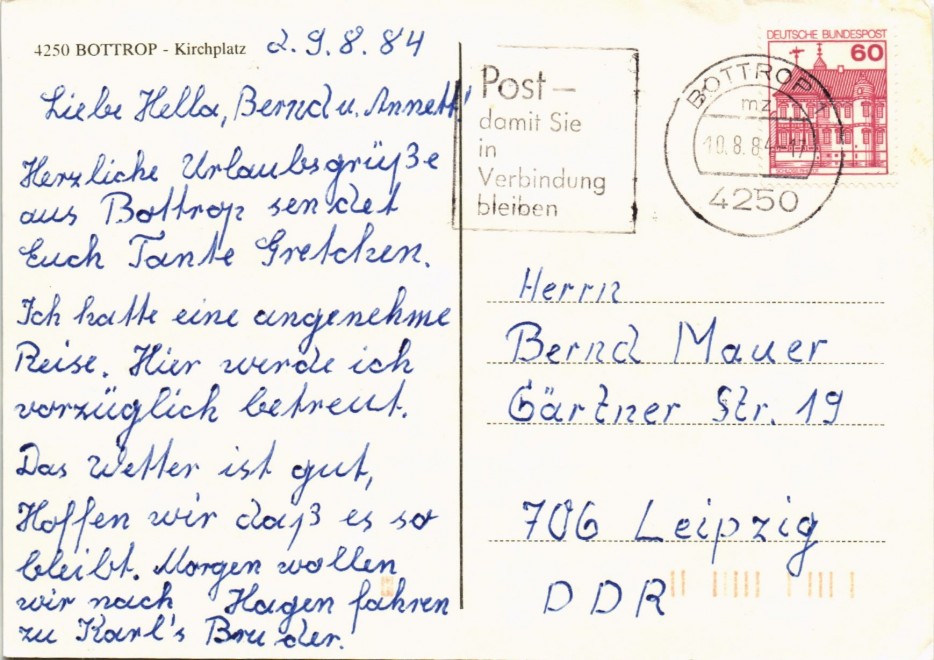 4250 BOTTROP - Kirchplatz
d. 9. 8. 84
Liebe Hella, Bernd u. Annett!
Herzliche Urlaubsgrüße
aus Bottrop sendet
Euch Tante Gretchen.
Ich hatte eine angenehme
Reise. Hier werde ich
vorzüglich betreut.
Das Wetter ist gut,
Hoffen wir daß es so
bleibt. Morgen wollen
wir nach Hagen fahren
zu Karl's Bruder.
Post –
damit Sie
in
Verbindung
bleiben
BOTTROP 1
mz
10.8.84-17
4250
DEUTSCHE BUNDESPOST
60
Herrn
Bernd Mauer
Gärtner Str. 19
706 Leipzig
DDR